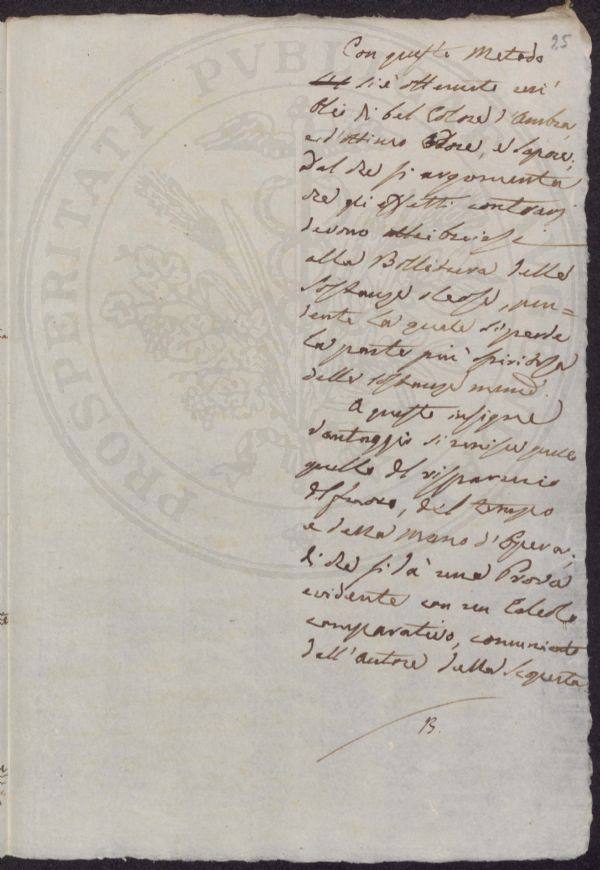 25
Con questo Metodo
si è ottenuto un'
Olio di bel Colore d'Ambra,
e d'ottimo Odore, e Sapore;
Dal che si argomenta
che gli effetti contrarj
devono attribuirsi
alla Bollitura delle
sostanze oleose, pen=
dente la quale si perde
la parte più spiritosa
delle sostanze
A questo insigne
vantaggio si unisce pure
quello del risparmio
del fuoco, del tempo
e della Mano d'Opera;
di che si dà una Prova
evidente con un Calcolo
comparativo, comunicato
dall'Autore della Scoperta
B.
PROSPERITATI PVBL